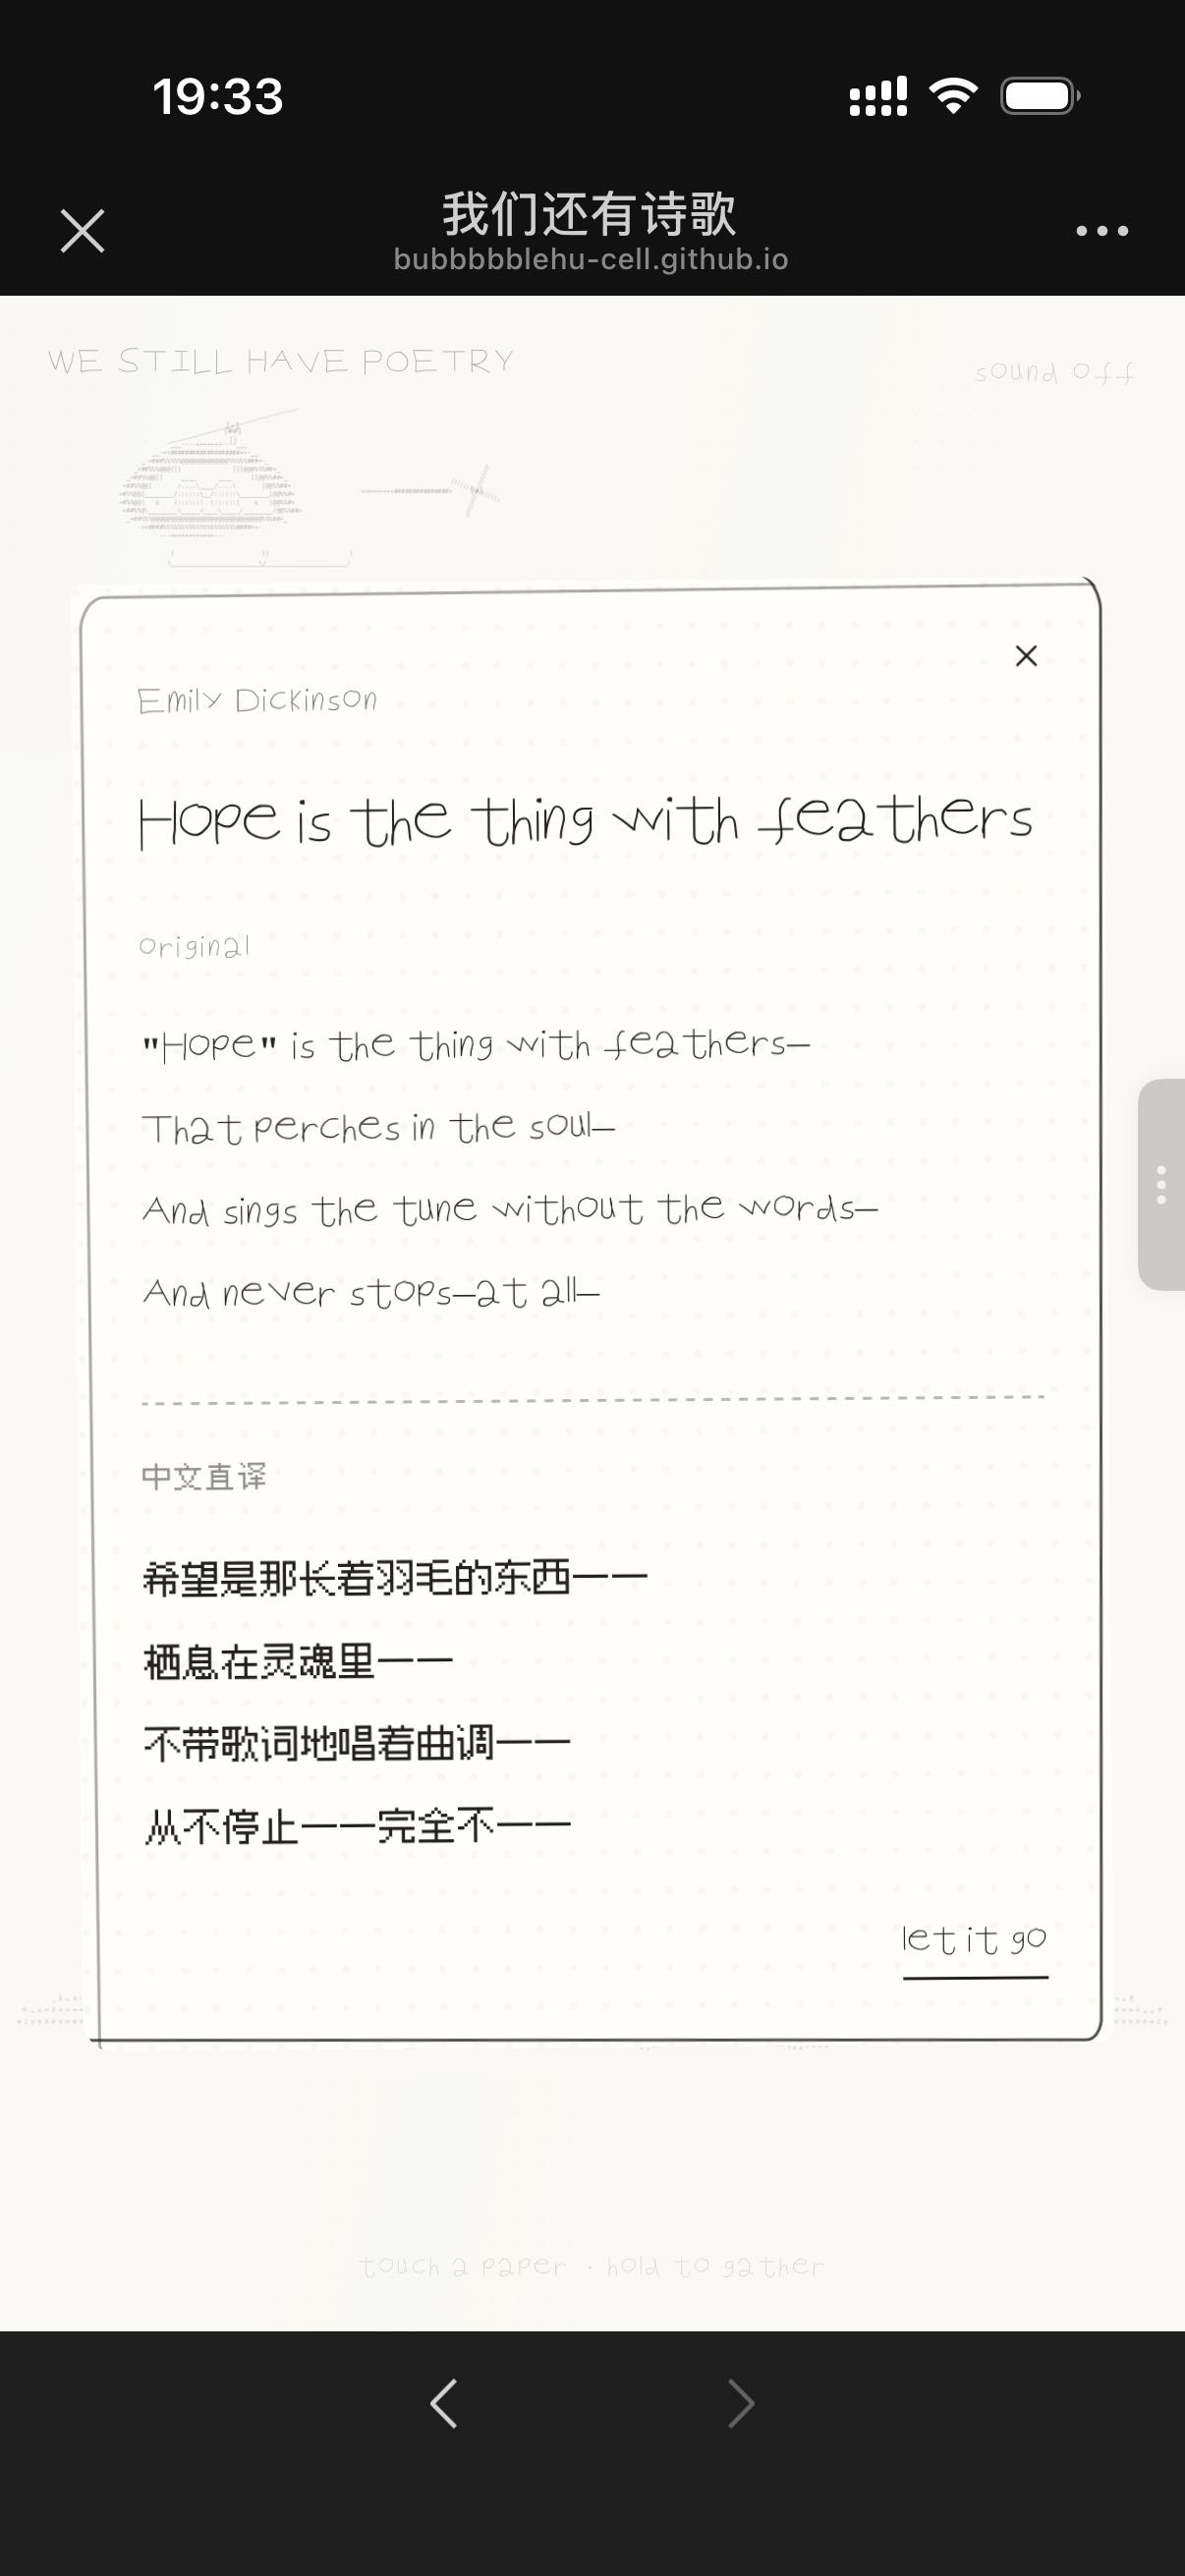 19:33
我们还有诗歌
bubbbbblehu-cell.github.io
WE STILL HAVE POETRY
sound off
Emily Dickinson
Hope is the thing with feathers
original
"Hope" is the thing with feathers—
That perches in the soul—
And sings the tune without the words—
And never stops—at all—
中文直译
希望是那长着羽毛的东西——
栖息在灵魂里——
不带歌词地唱着曲调——
从不停止——完全不——
let it go
touch a paper · hold to gather